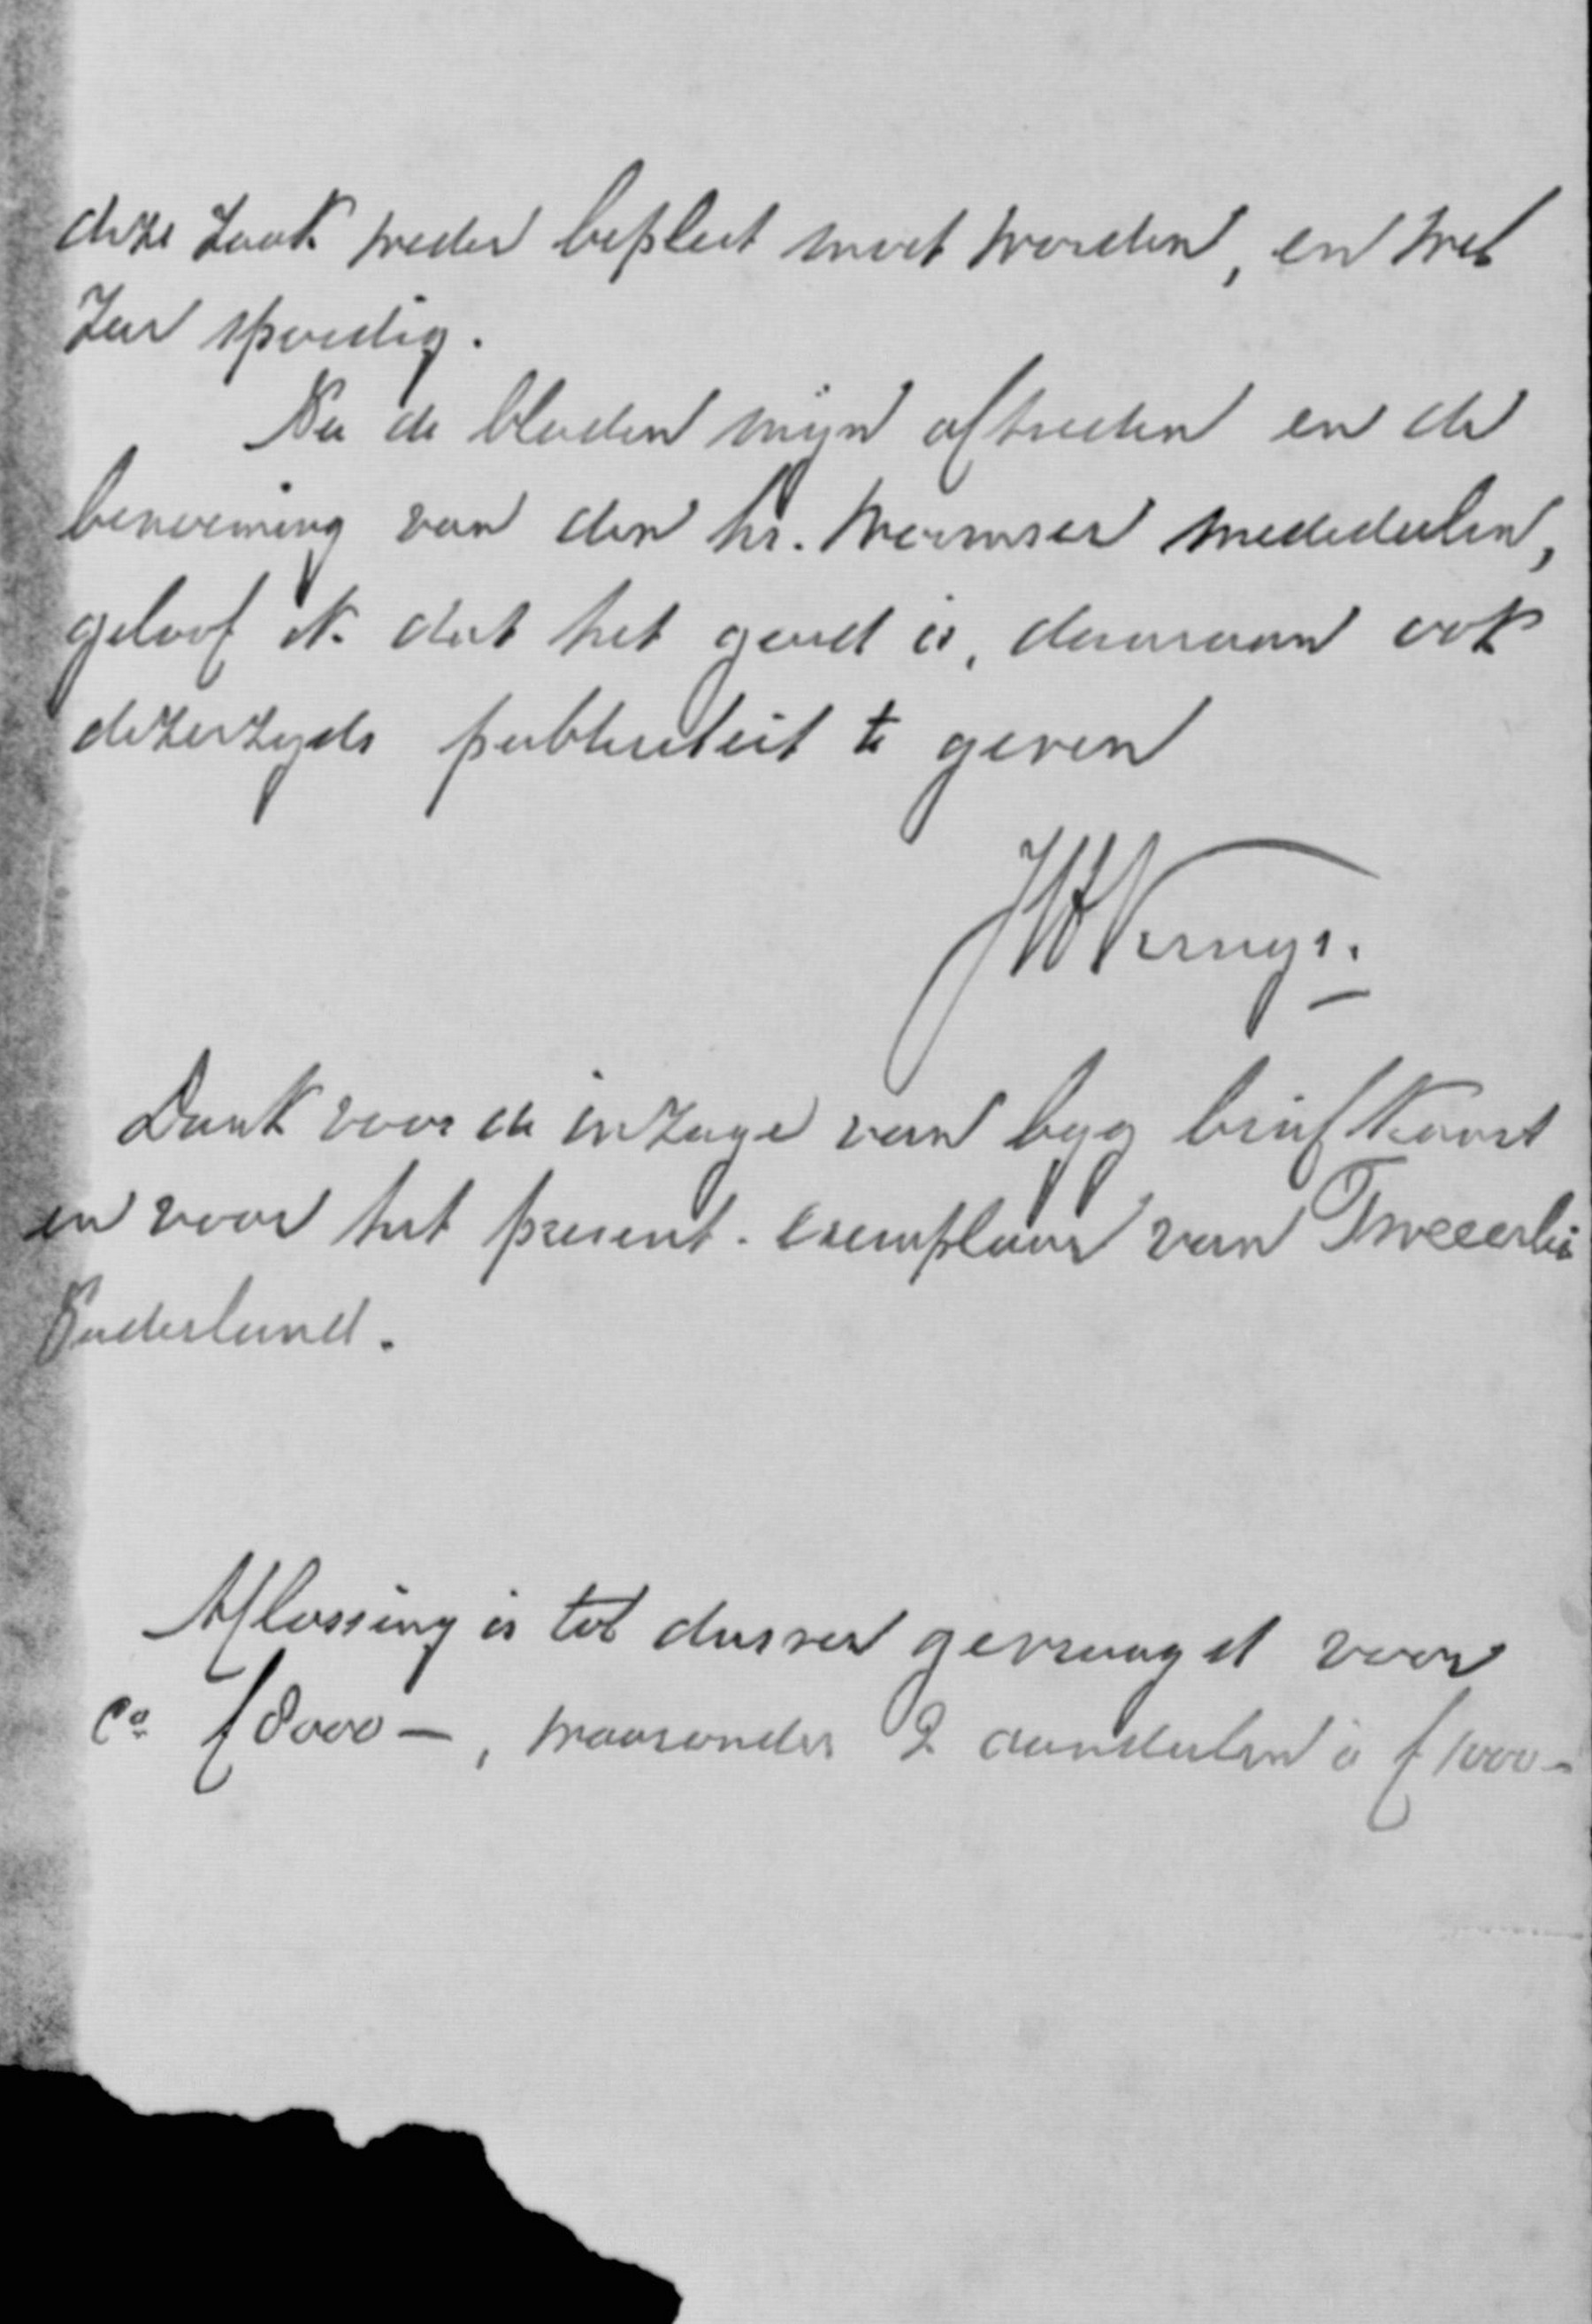 deze zaak weder bepleit moet worden, en wel
zeer spoedig.
Nu de bladen mijn aftreden en de
benoeming van den hr. Wormser mededeelen,
geloof ik dat het goed is, daaraan ook
dezerzyds publiciteit te geven
JW Vernys.
Dank voor de inzage van byg briefkaart
en voor het present-exemplaar van Tweeerlei
Vaderland.
Aflossing is tot dusver gevraagd voor
Co f 8000 –, waaronder 2 aandeelen à f 1000 –